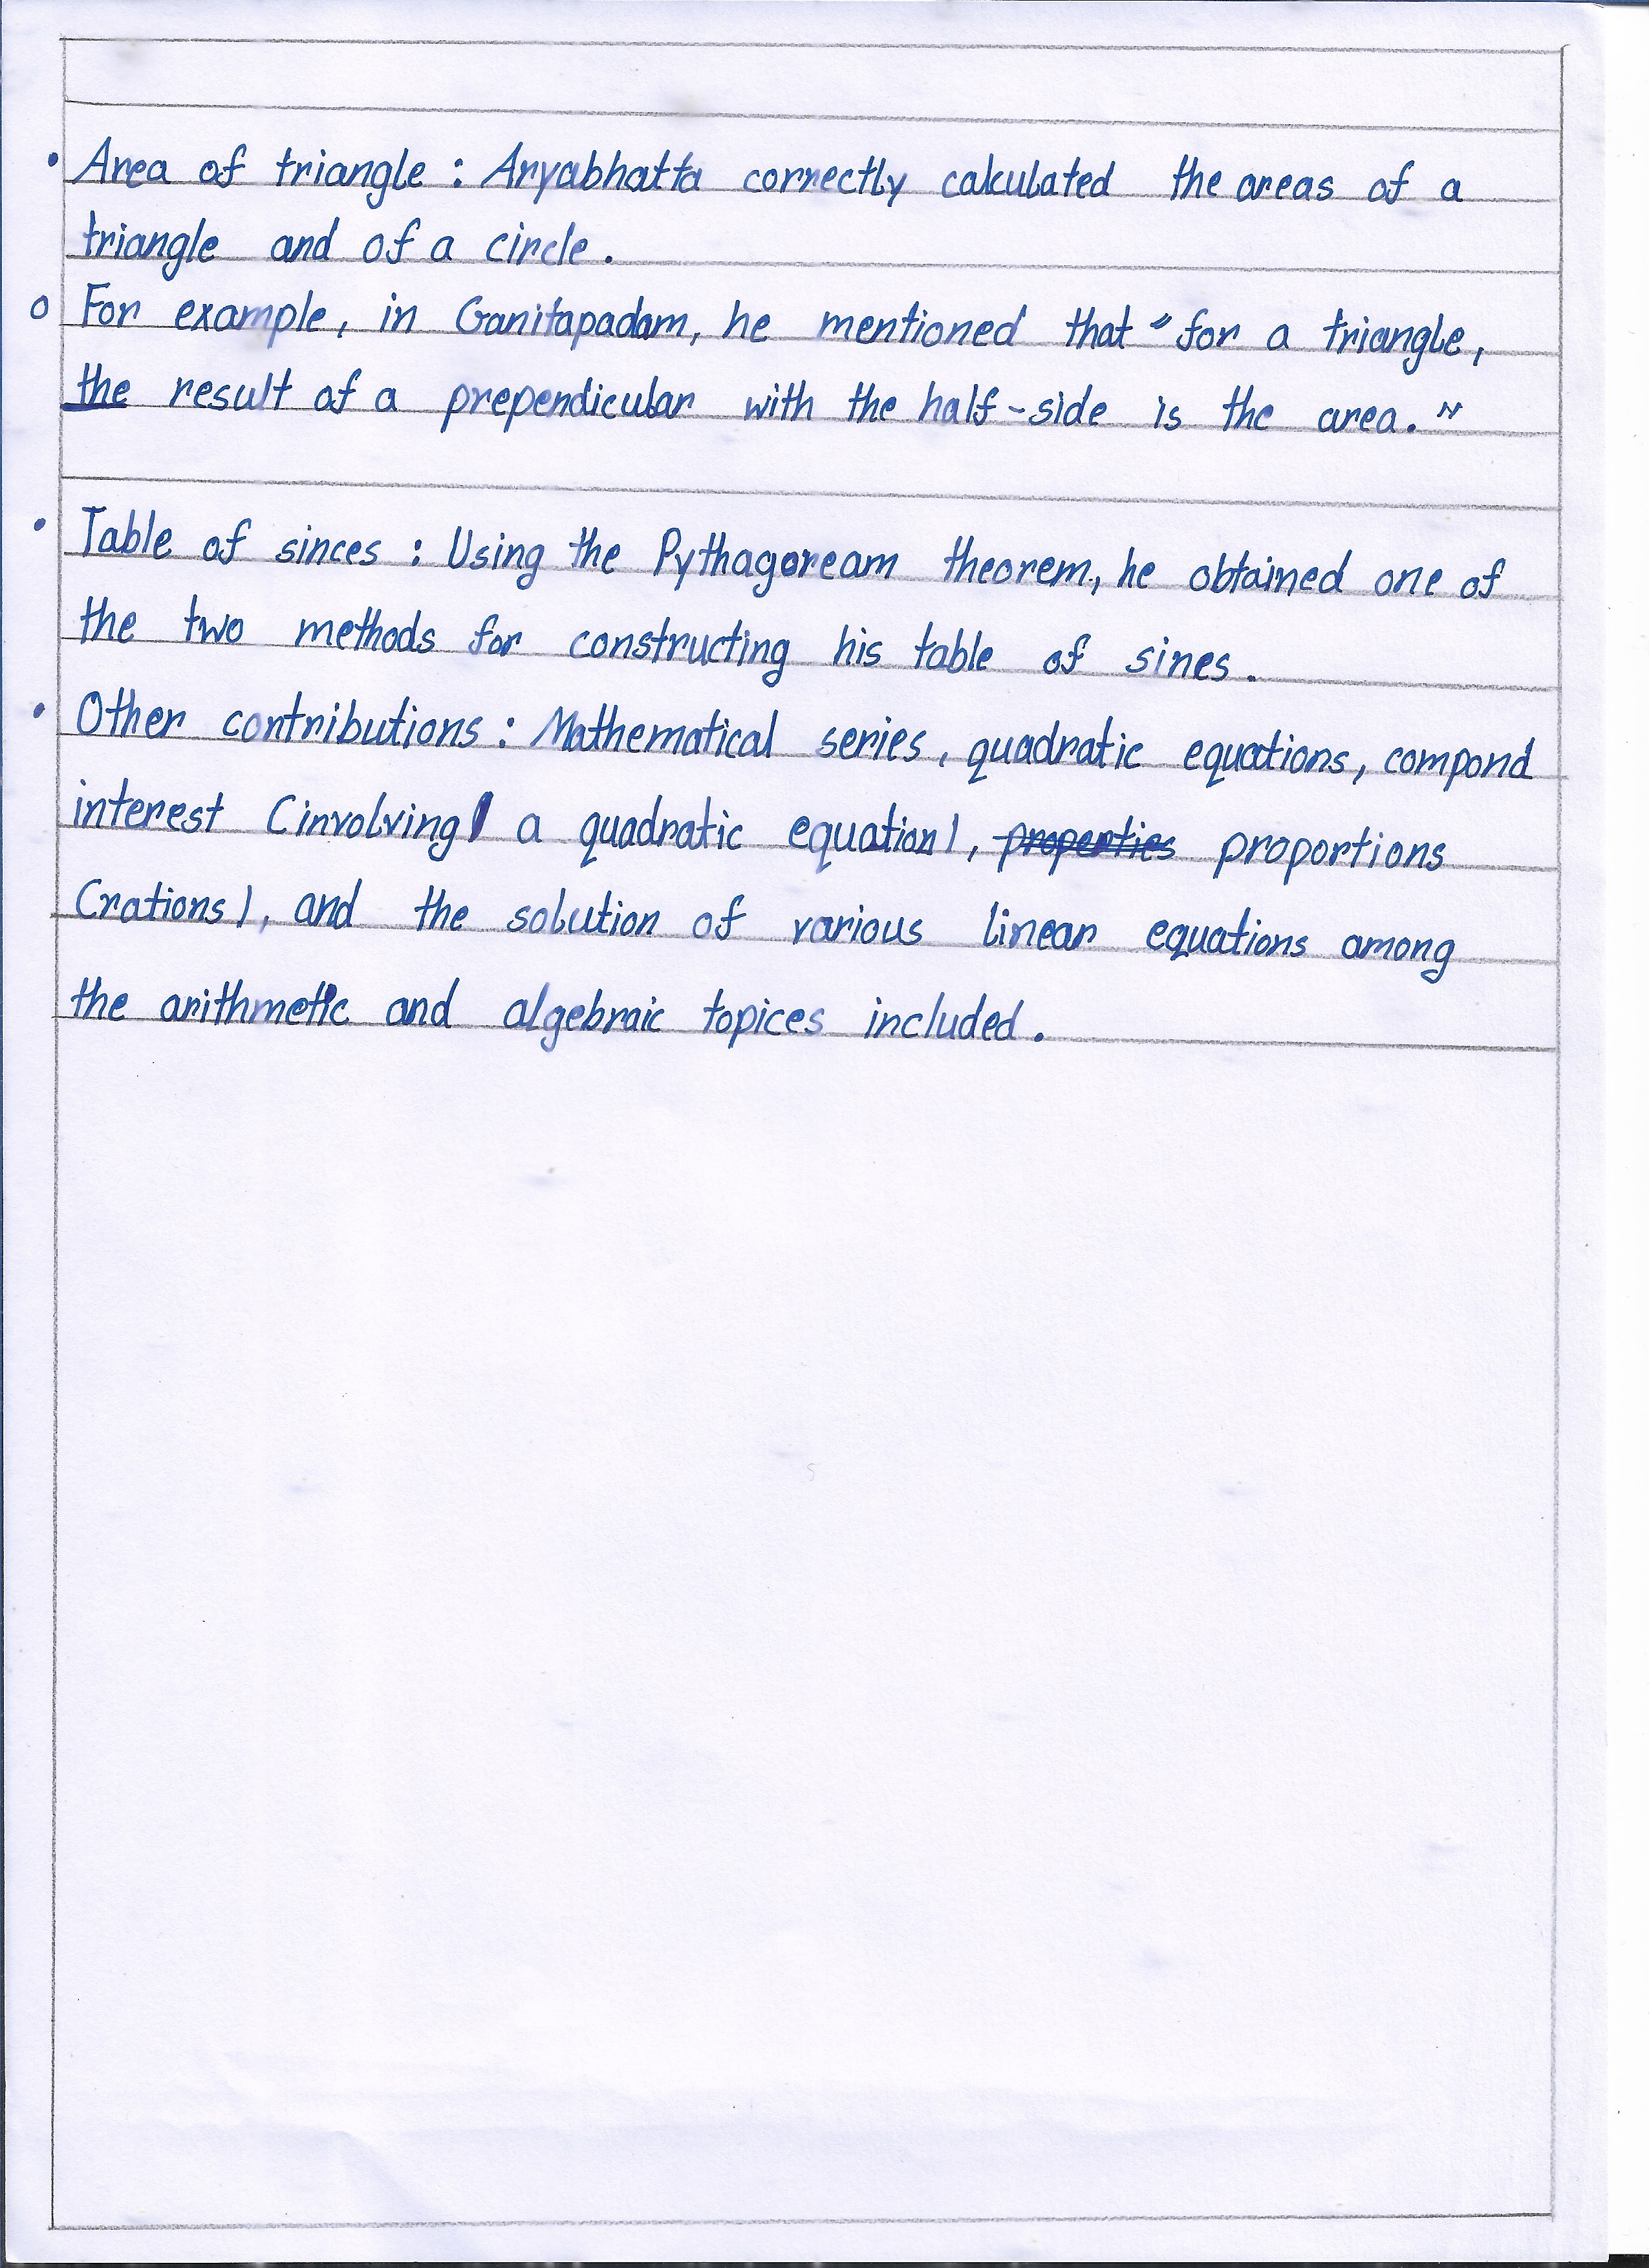 • Area of triangle : Aryabhatta correctly calculated the areas of a
triangle and of a circle.
o For example, in Ganitapadam, he mentioned that "for a triangle,
the result of a prependicular with the half-side is the area."
• Table of sinces : Using the Pythagoream theorem, he obtained one of
the two methods for constructing his table of sines.
• Other contributions : Mathematical series, quadratic equations, compond
interest (involving a quadratic equation), properties proportions
(rations), and the solution of various linear equations among
the arithmetic and algebraic topices included.